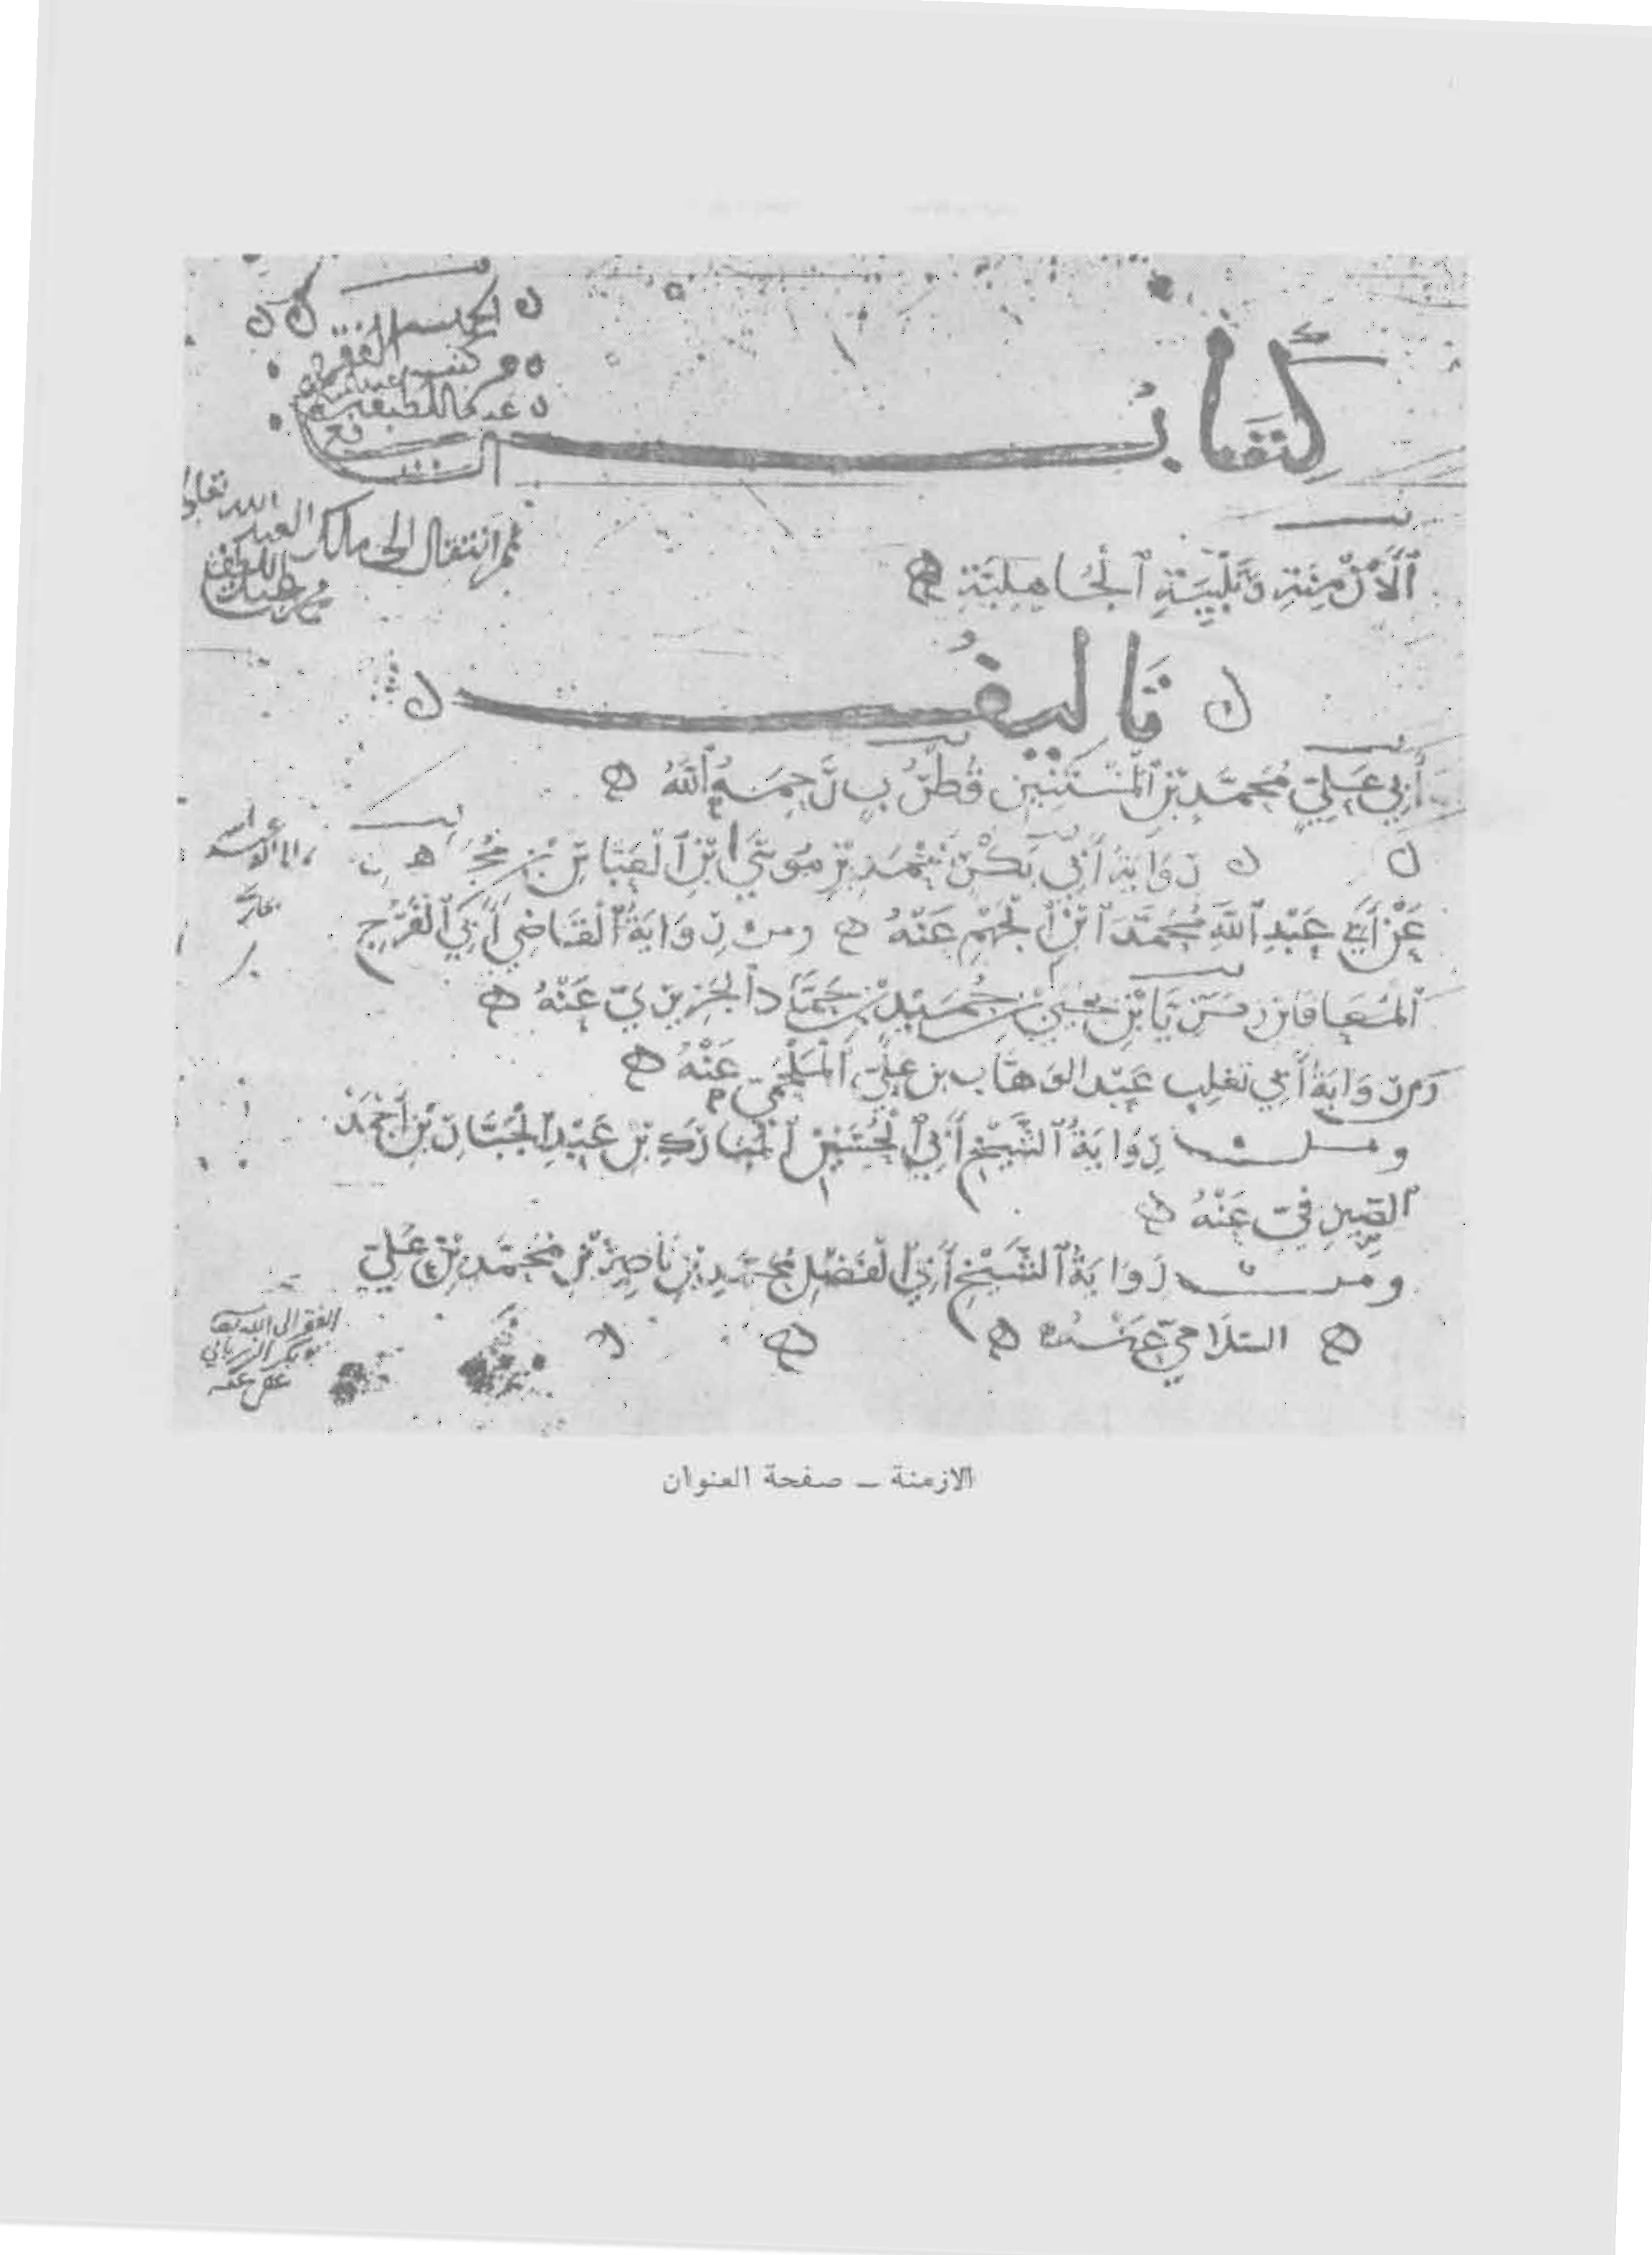 كتاب
الْأَزْمِنَةِ وَتَلْبِيَةِ الْجَاهِلِيَّةِ
تأليف
أَبِي عَلِيٍّ مُحَمَّدِ بْنِ الْمُسْتَنِيرِ قُطْرُبٍ رَّحِمَهُ اللَّهُ
رِوَايَةُ أَبِي بَكْرٍ أَحْمَدِ بْنِ مُوسَى ابْنِ الْعَبَّاسِ بْنِ مُجَاهِد
عَنْ أَبِي عَبْدِ اللَّهِ مُحَمَّدِ ابْنِ الْجَهْمِ عَنْهُ ومن رِوَايَةِ الْقَاضِي أَبِي الْفَرَجِ
الْمُعَافَا بْنِ زَكَرِيَّا بْنِ يَحْيَى بْنِ حُمَيْدِ بْنِ حَمَّادٍ الْجَرِيرِيِّ عَنْهُ
وَمِن رِوَايَةِ أَبِي تَغلِب عَبْد الوَهَّاب بن عَلِيّ الْمُلْحَمِيّ عَنْهُ
ومن رِوَايَةِ الشَّيْخِ أَبِي الْحُسَيْنِ الْمُبَارَكِ بْنِ عَبْدِ الْجَبَّارِ بْنِ أَحْمَدَ
الصَّيْرَفِيّ عَنْهُ
ومن رِوَايَةِ الشَّيْخِ أَبِي الْفَضْلِ مُحَمَّدِ بْنِ نَاصِرِ بْنِ مُحَمَّدِ بْنِ عَلِيٍّ
السَّلَامِيّ عَنْهُ
ثم انتقال الى مالك العبد
الفقير الى الله
الازمنة ــ صفحة العنوان